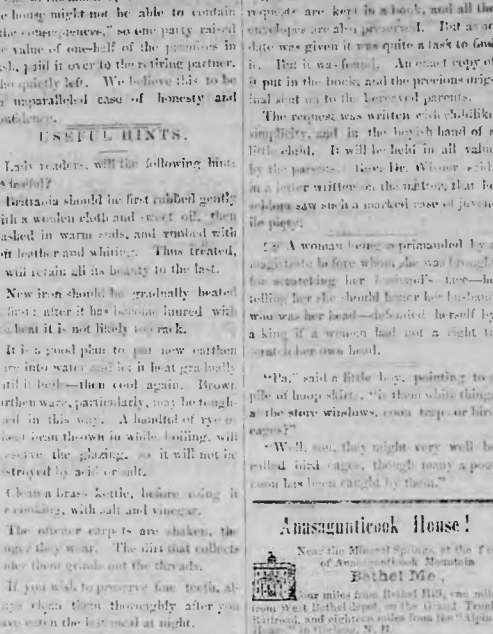 house might not be able to contain
the consequences," so one party raised
value of one-half of the premises in
paid it over to the retiring partner.
quietly left. We believe this to be
unparalleled case of honesty and
USEFUL HINTS.
Lady readers, will the following hints
Brittania should be first rubbed gently
a woolen cloth and sweet oil, then
in warm suds, and rubbed with
leather and whiting. Thus treated,
will retain all its beauty to the last.
New iron should be gradually heated
first; after it has become inured with
heat it is not likely to crack.
It is a good plan to put new earthen
into water and let it heat gradually
boils—then cool again. Brown
ware, particularly, may be tough-
in this way. A handful of rye or
bran thrown in while boiling, will
the glazing, so it will not be
by acid or salt.
Clean a brass kettle, before using it
cooking, with salt and vinegar.
The oftener carpets are shaken, the
they wear. The dirt that collects
them grinds out the threads.
If you wish to preserve fine teeth, al-
clean them thoroughly after you
eaten the last meal at night.
requests are kept in a book, and all the
envelopes are also preserved. But as no
date was given it was quite a task to find
it. But it was found. An exact copy of
it put in the book, and the precious orig-
inal sent on to the bereaved parents.
The request was written with childlike
simplicity, and in the boyish hand of a
little child. It will be held in all value
by the parents. Rev. Dr. said,
in a letter written on the matter, that he
seldom saw such a marked case of juven-
ile piety.
A woman being reprimanded by a
magistrate before whom she was brought
for scratching her husband's face—he
telling her she should honor her husband
who was her head—defended herself by
a king if a woman had not a right to
scratch her own head.
"Pa," said a little boy, pointing to a
pile of hoop skirts, "is them white things
a the store windows, coon traps or bird
cages?"
"Well, son, they might very well be
called bird cages, though many a poor
coon has been caught by them."
Anasagunticook House!
Near the Mineral Springs, at the
of Anasagunticook Mountain
Bethel Me.,
our miles from Bethel Hill, one mile
from West Bethel depot, on the Grand Trunk
Railroad, and eighteen miles from the "Alpine
House," in Gorham, N. H.